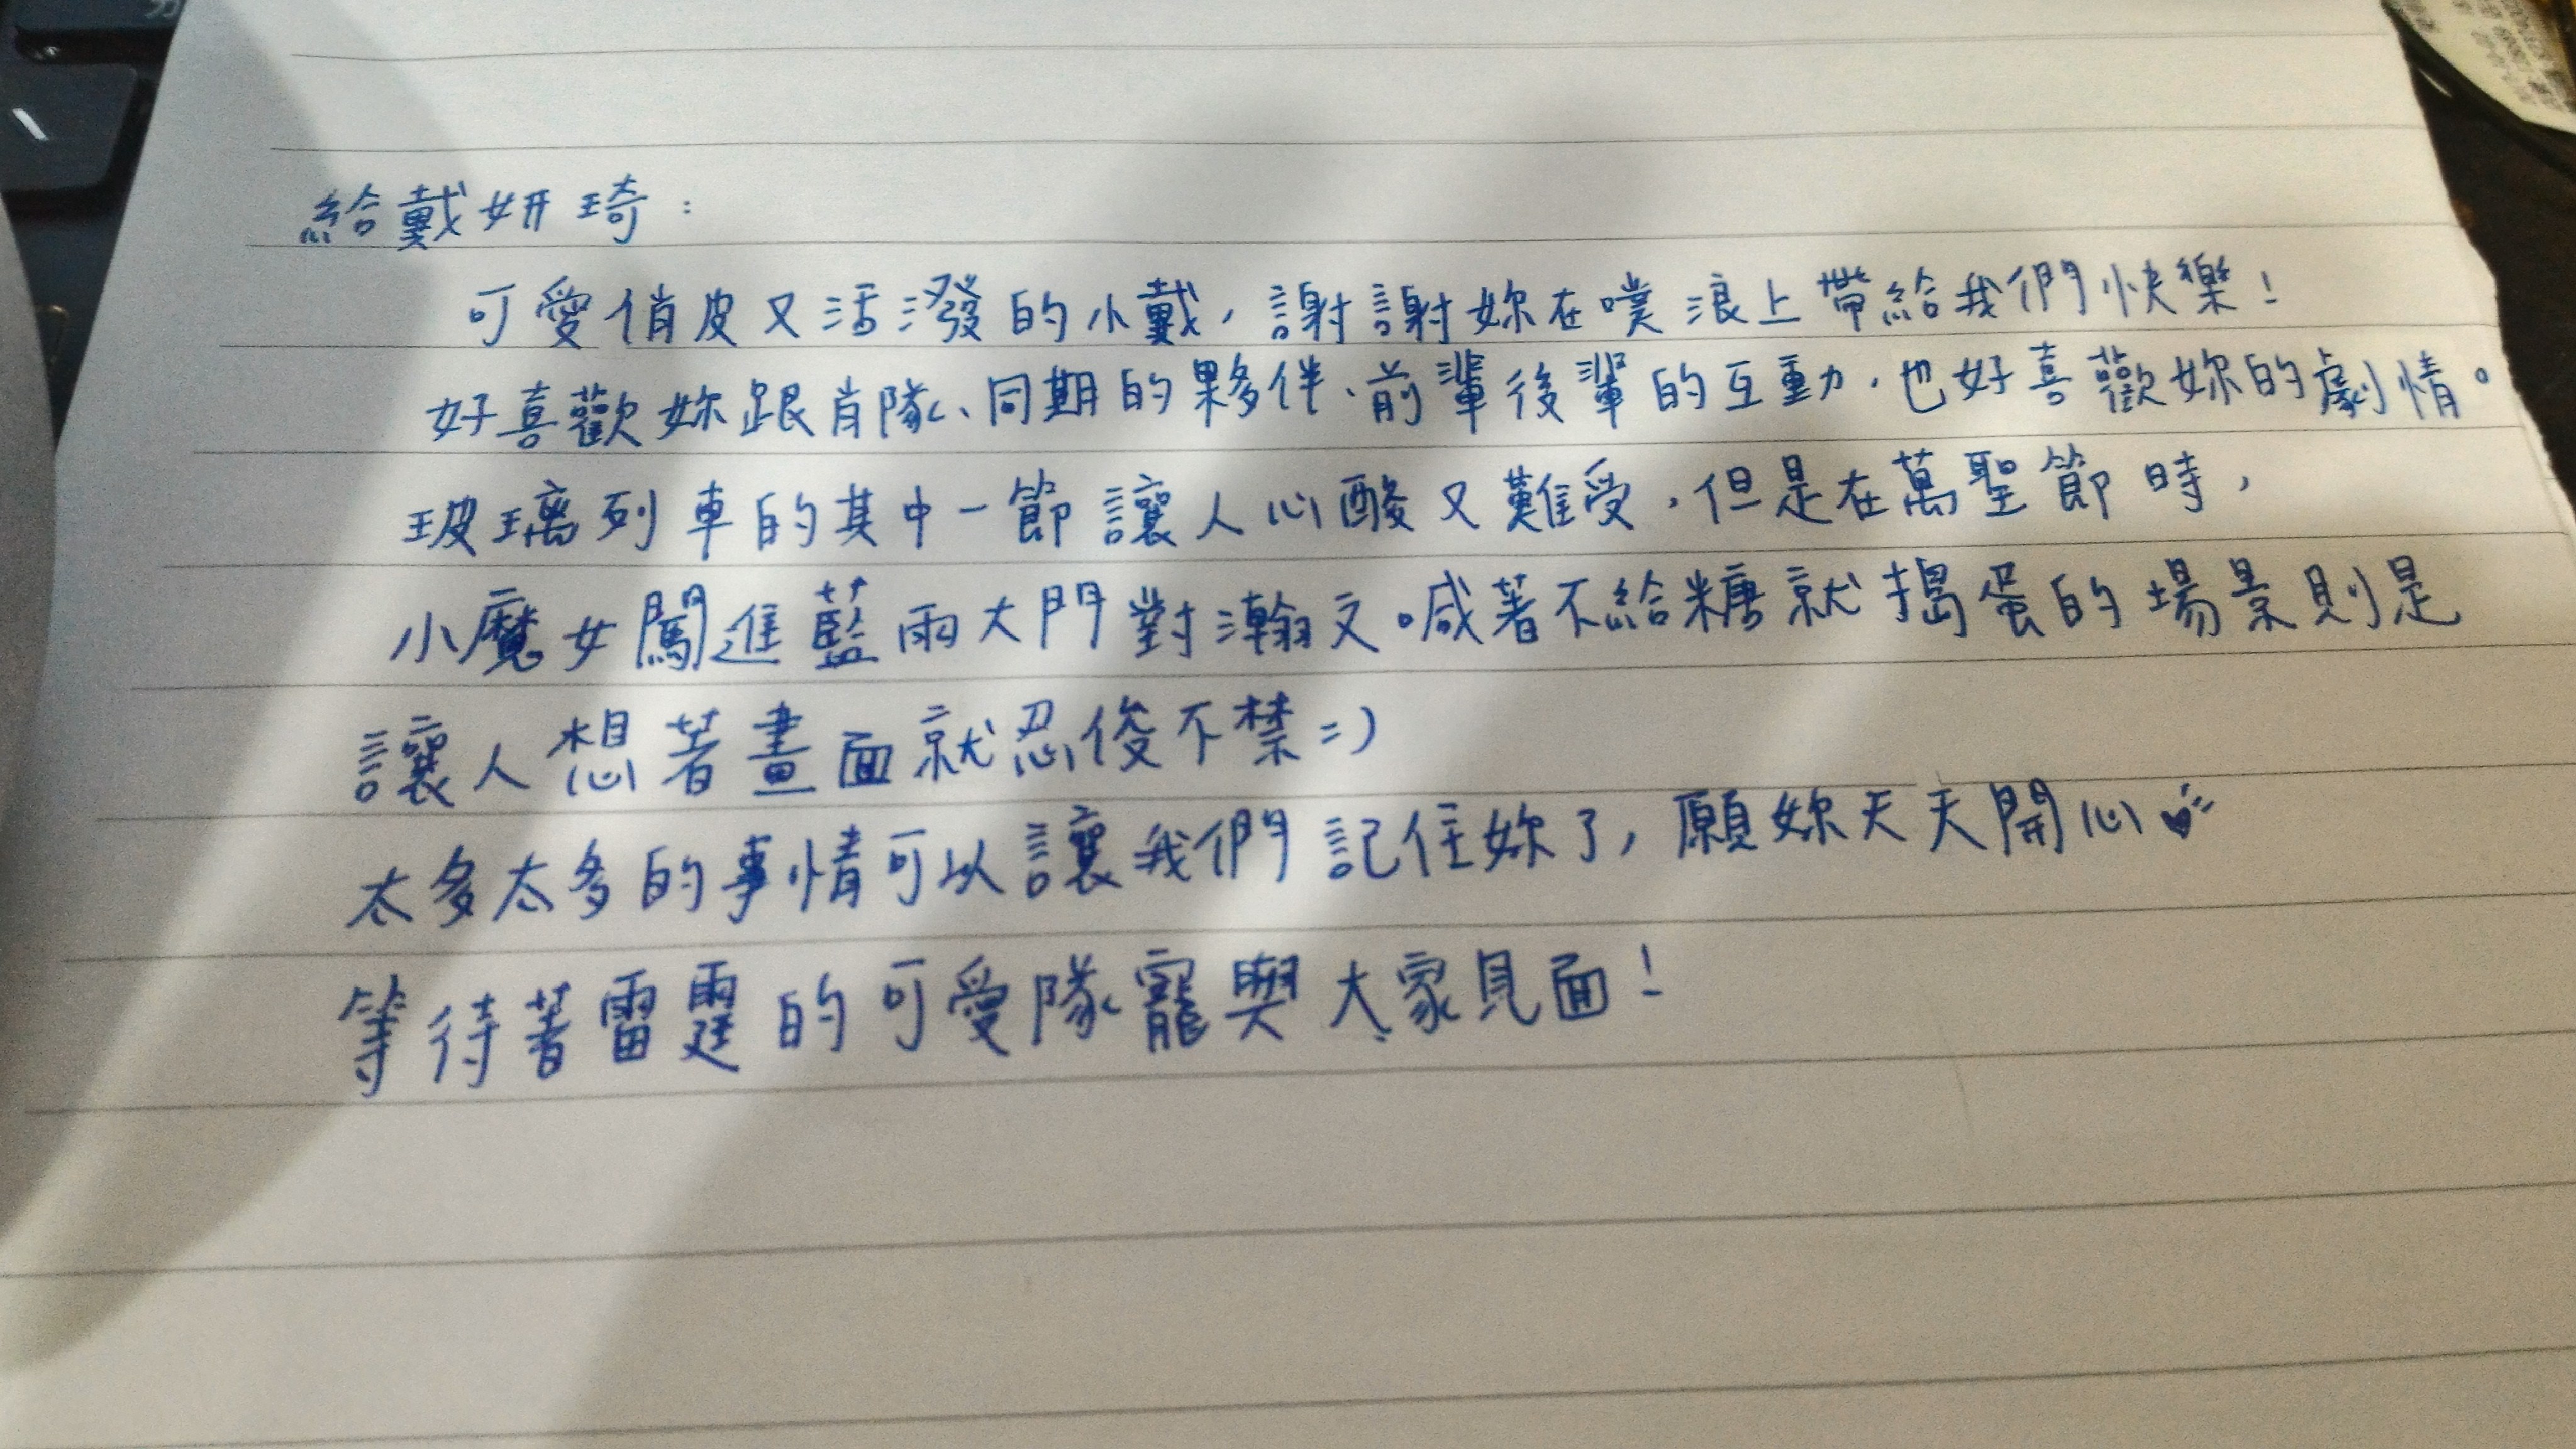 給戴妍琦：
可愛俏皮又活潑的小戴，謝謝妳在噗浪上帶給我們快樂！
好喜歡妳跟肖隊、同期的夥伴、前輩後輩的互動，也好喜歡妳的劇情。
玻璃列車的其中一節讓人心酸又難受，但是在萬聖節時，
小魔女闖進藍雨大門對瀚文喊著不給糖就搗蛋的場景則是
讓人想著畫面就忍俊不禁=)
太多太多的事情可以讓我們記住妳了，願妳天天開心
等待著雷霆的可愛隊寵與大家見面！